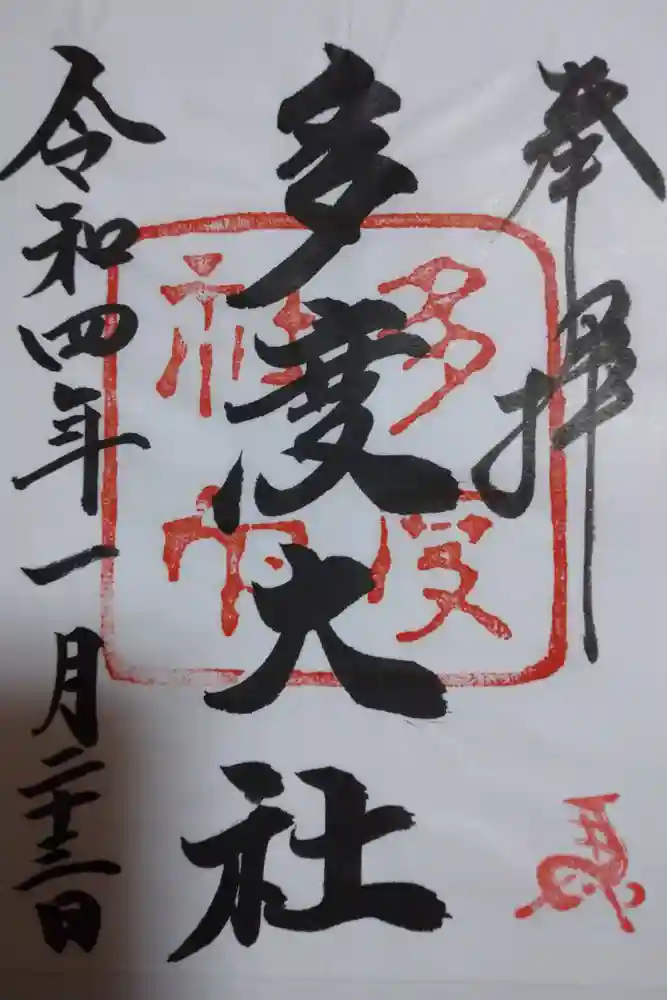 奉拝
多度大社
多度社印
令和四年一月二十三日